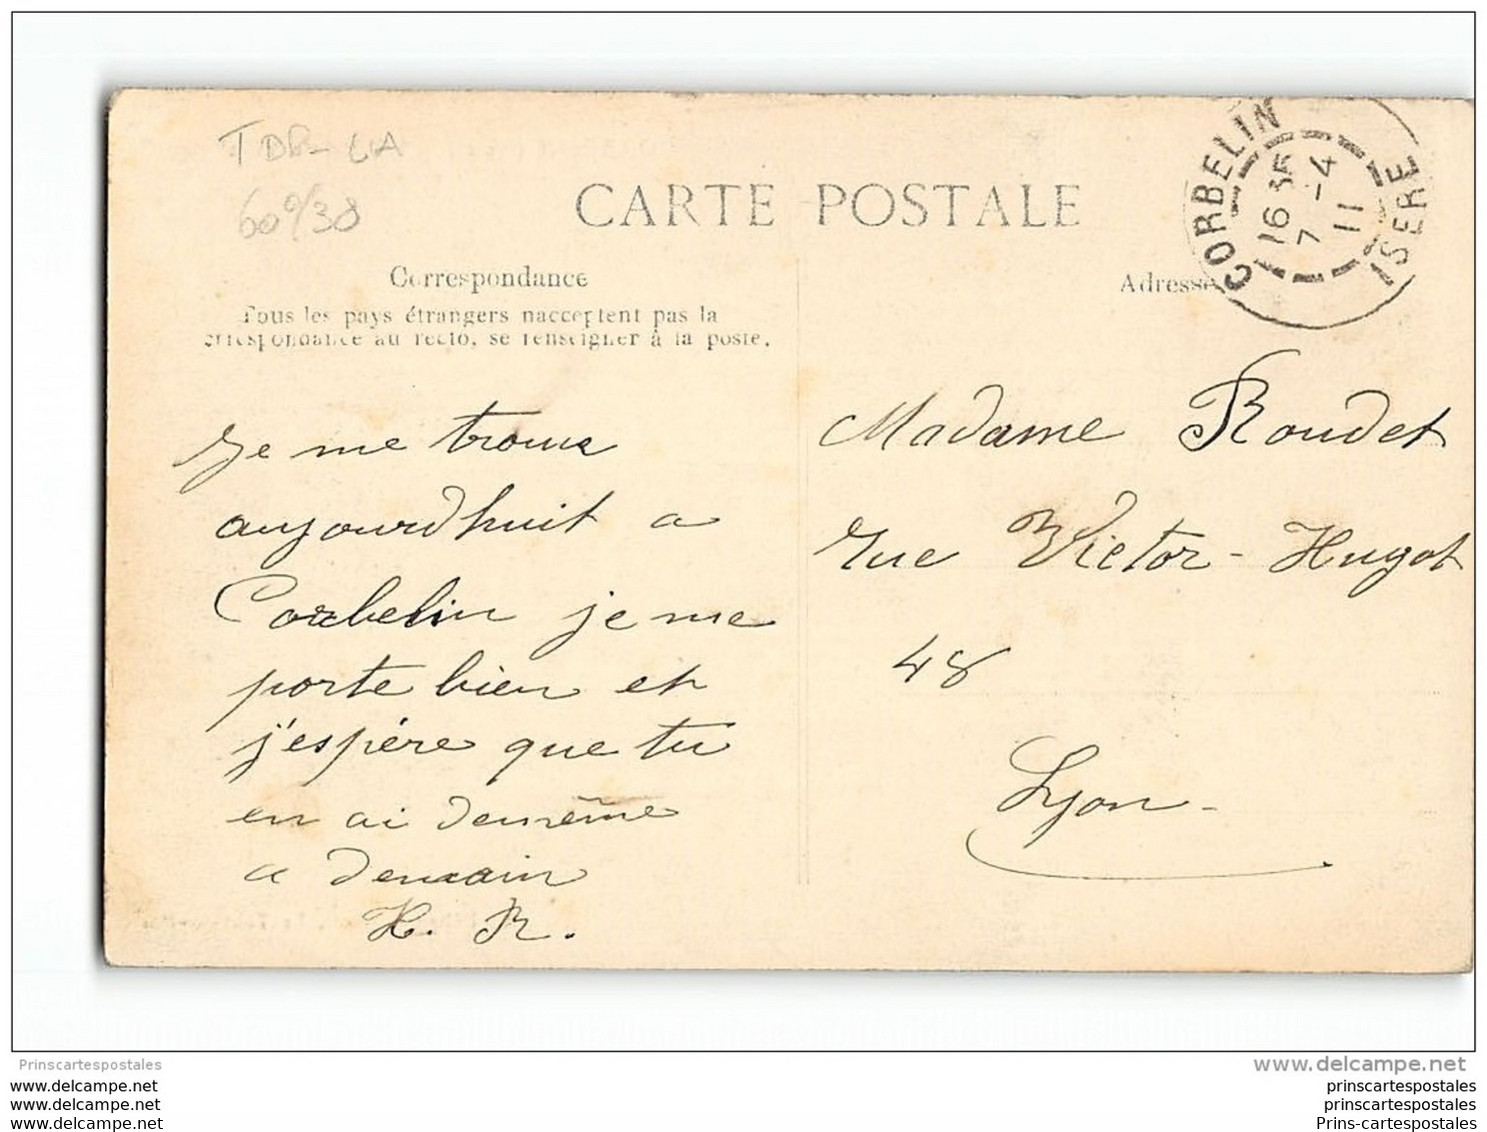 TDP-LIA
60%38
CARTE POSTALE
CORBELIN
16 35
7 -4
11
ISERE
Correspondance
Tous les pays étrangers nacceptent pas la
correspondance au recto, se renseigner à la poste.
Adresse
Je me trouve
aujourdhuit a
Corbelin je me
porte bien et
j'espére que tu
en ai demême
a demain
H. R.
Madame Roudet
Rue Victor-Hugot
48
Lyon-
Prinscartespostales
www.delcampe.net
www.delcampe.net
www.delcampe.net
www.delcampe.net
prinscartespostales
prinscartespostales
Prins-cartespostales